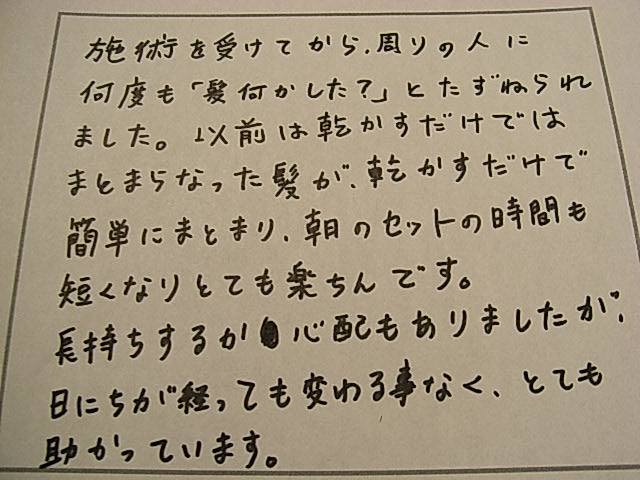 施術を受けてから、周りの人に
何度も「髪何かした？」とたずねられ
ました。以前は乾かすだけでは
まとまらなった髪が、乾かすだけで
簡単にまとまり、朝のセットの時間も
短くなりとても楽ちんです。
長持ちするか心配もありましたが、
日にちが経っても変わる事なく、とても
助かっています。